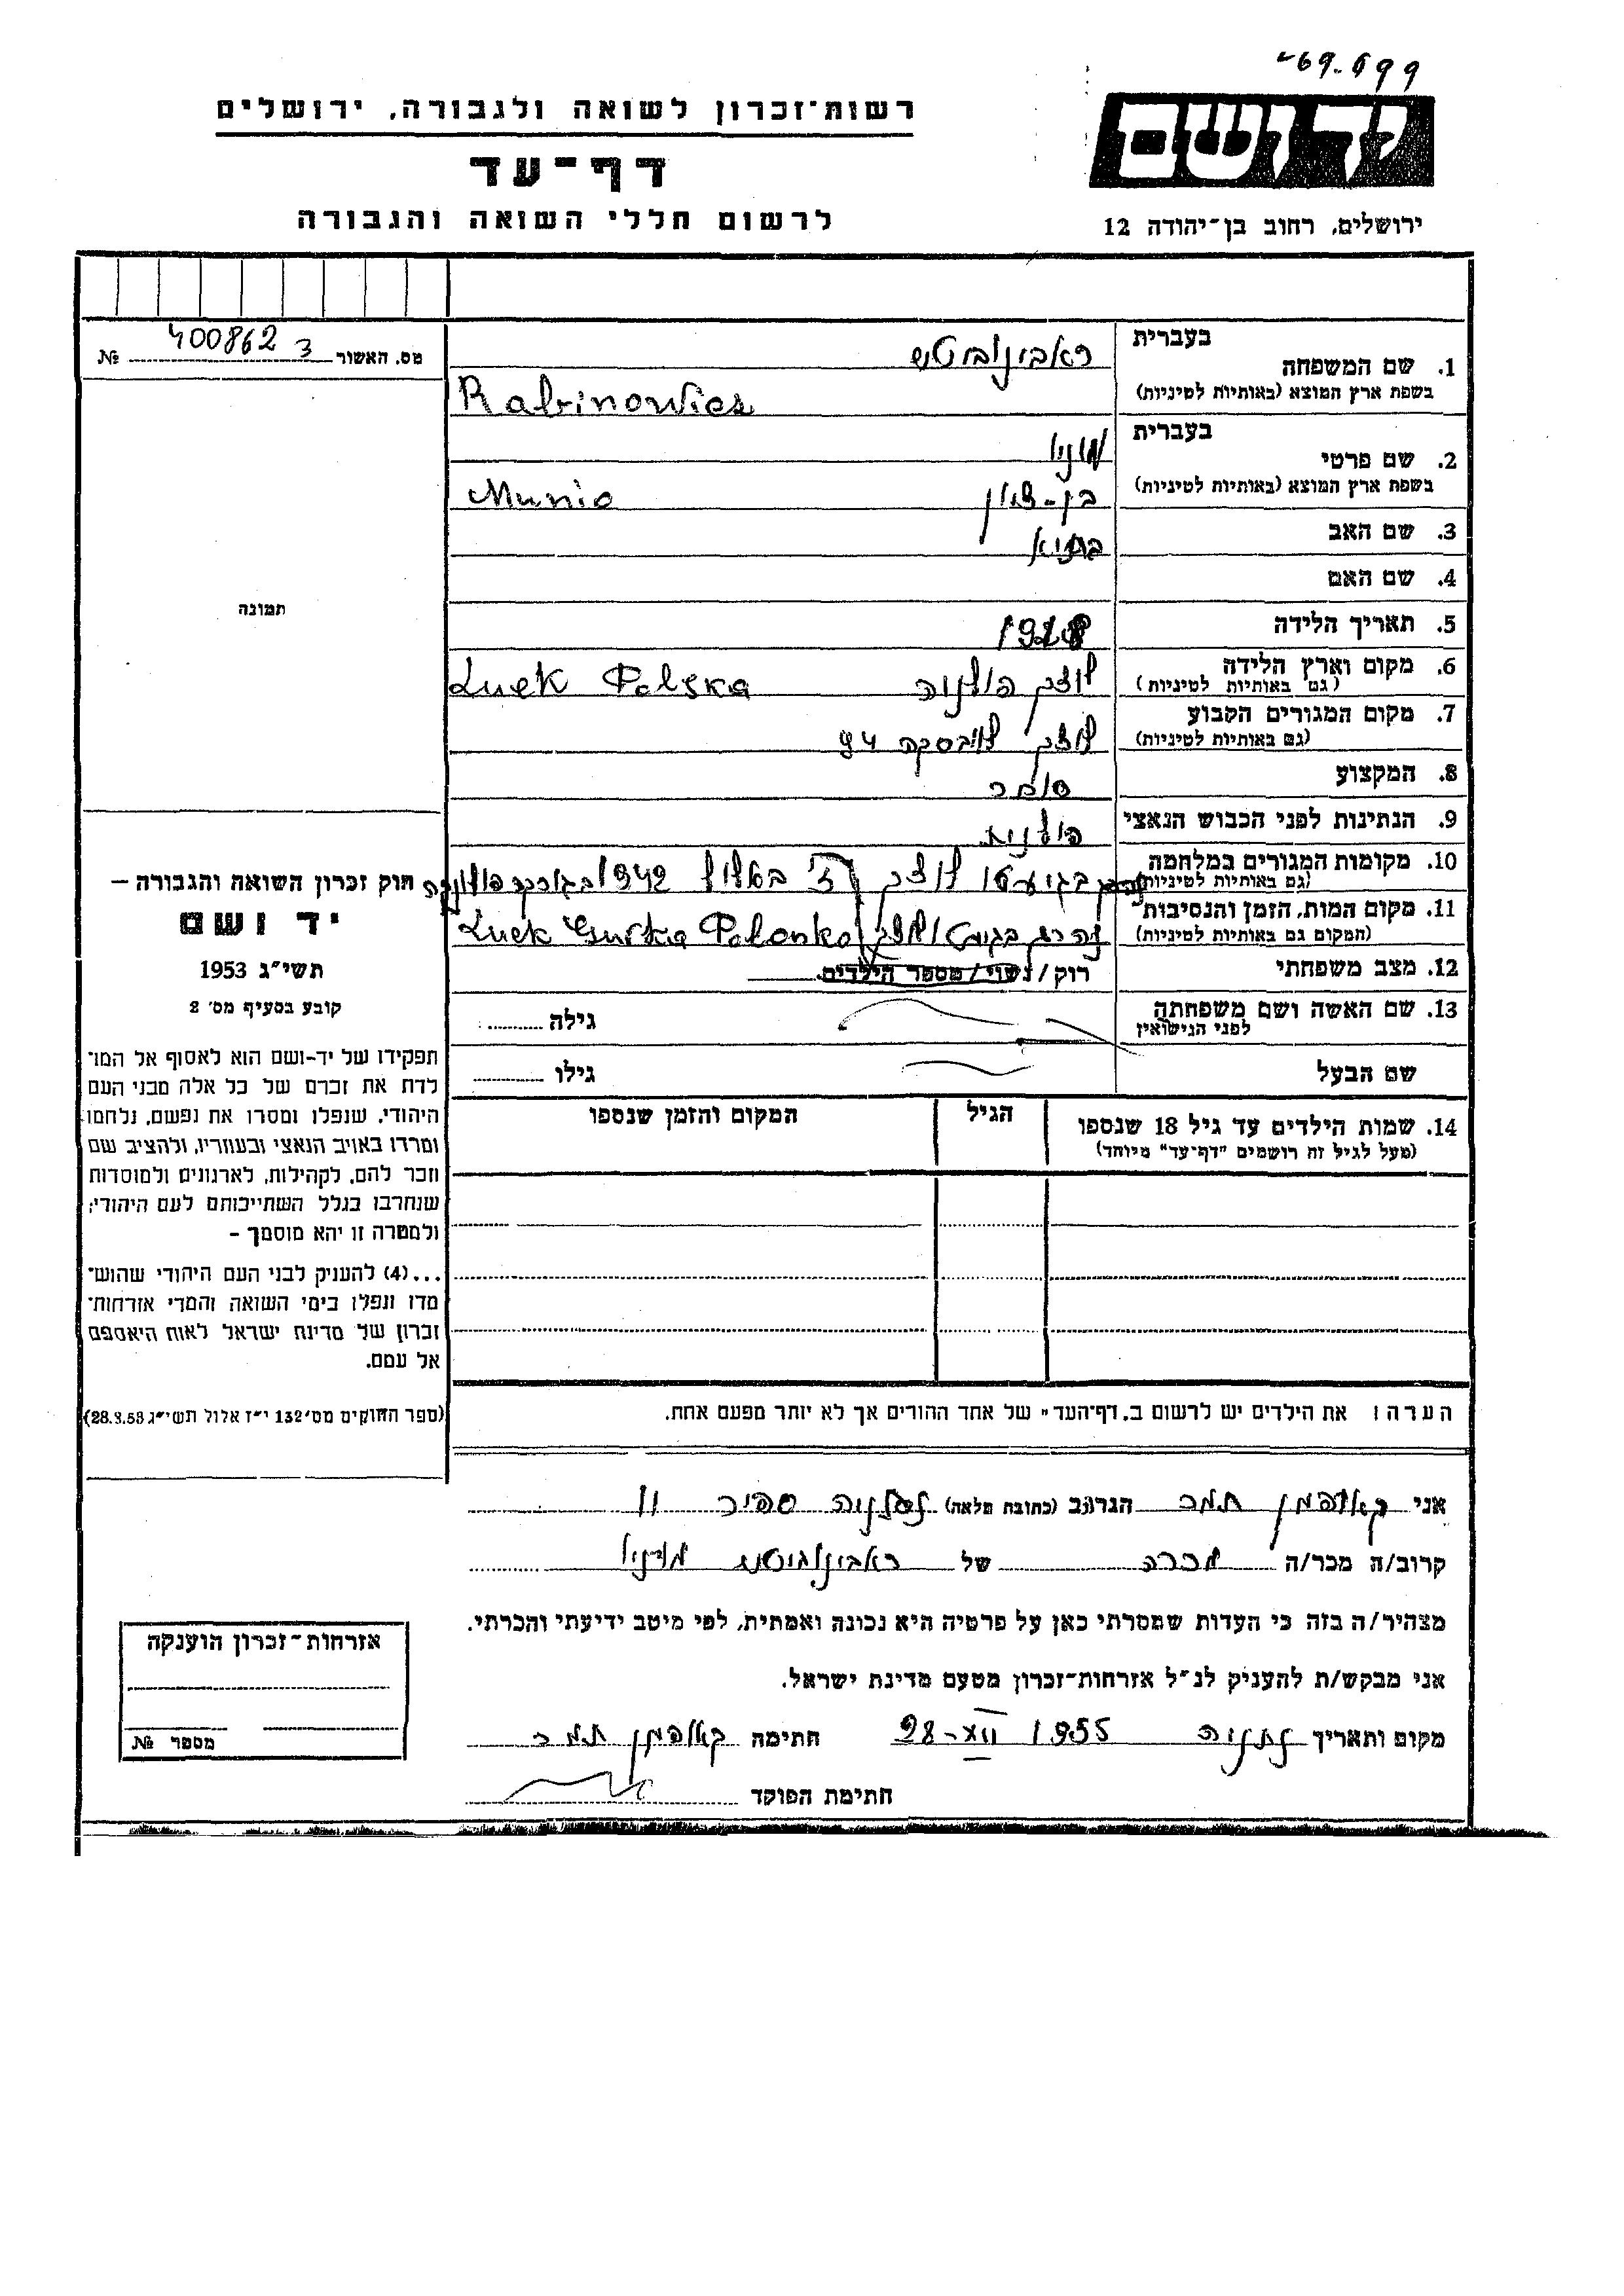 רשות־זכרון לשואה ולגבורה, ירושלים
דף־עד
לרשום חללי השואה והגבורה
יד ושם
ירושלים, רחוב בן־יהודה 12
מס. האשור 400862 3 №
תמונה
בעברית ראבינוביטש
1. שם המשפחה
בשפת ארץ המוצא (באותיות לטיניות) Rabinowicz
בעברית מוניו
2. שם פרטי
בשפת ארץ המוצא (באותיות לטיניות) Munio
3. שם האב בן-ציון
4. שם האם
5. תאריך הלידה
6. מקום וארץ הלידה לוצק פולניה Łuck Polska
(גם באותיות לטיניות)
7. מקום המגורים הקבוע לוצק 94
(גם באותיות לטיניות)
8. המקצוע סוחר
9. הנתינות לפני הכבוש הנאצי פולנית
10. מקומות המגורים במלחמה בגיעטו לוצק ז' באלול 1942
(גם באותיות לטיניות)
11. מקום המות, הזמן והנסיבות Łuck Gurka Polonka
(המקום גם באותיות לטיניות)
12. מצב משפחתי רוק/נשוי/מספר הילדים
13. שם האשה ושם משפחתה גילה
לפני הנישואין
שם הבעל גילו
14. שמות הילדים עד גיל 18 שנספו הגיל המקום והזמן שנספו
(מעל לגיל זה רושמים "דף־עד" מיוחד)
חוק זכרון השואה והגבורה —
יד ושם
תשי"ג 1953
קובע בסעיף מס' 2
תפקידו של יד-ושם הוא לאסוף אל המו־
לדת את זכרם של כל אלה מבני העם
היהודי, שנפלו ומסרו את נפשם, נלחמו
ומרדו באויב הנאצי ובעוזריו, ולהציב שם
וזכר להם, לקהילות, לארגונים ולמוסדות
שנחרבו בגלל השתייכותם לעם היהודי;
ולמטרה זו יהא מוסמך –
...(4) להעניק לבני העם היהודי שהוש־
מדו ונפלו בימי השואה והמרי אזרחות־
זכרון של מדינת ישראל לאות היאספם
אל עמם.
(ספר החוקים מס' 132 י"ז אלול תשי"ג 28.8.53)
הערה: את הילדים יש לרשום ב„דף־העד" של אחד ההורים אך לא יותר מפעם אחת.
אני קאופמן תמר הגר/ה ב (כתובת מלאה) נתניה ספיר 11
קרוב/ה מכר/ה מכרה של ראבינוביטש מוניו
מצהיר/ה בזה כי העדות שמסרתי כאן על פרטיה היא נכונה ואמתית, לפי מיטב ידיעתי והכרתי.
אני מבקש/ת להעניק לנ"ל אזרחות־זכרון מטעם מדינת ישראל.
מקום ותאריך נתניה 28-XII 1955 חתימה קאופמן תמר
חתימת הפוקד
אזרחות־זכרון הוענקה
מספר №